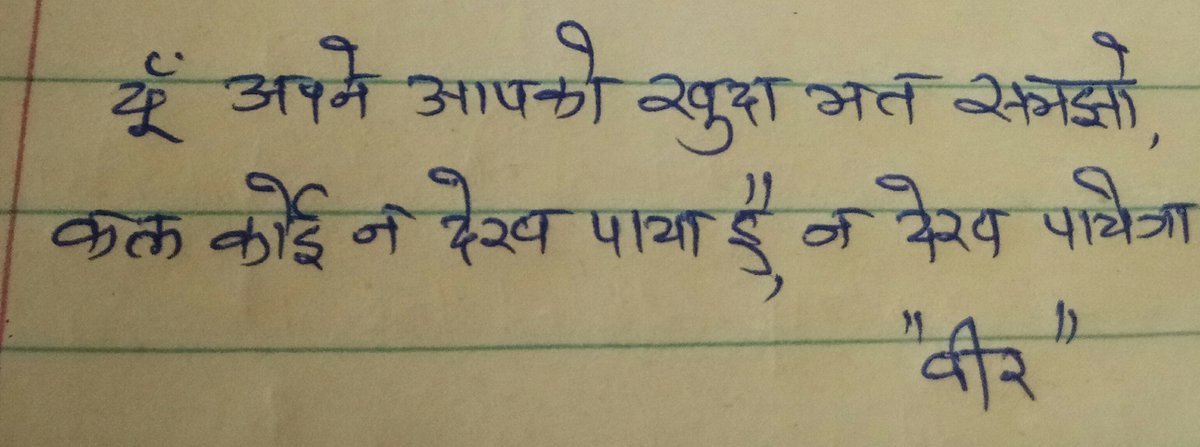 यूँ अपने आपको खुदा मत समझो,
कल कोई न देख पाया है, न देख पायेगा
"वीर"